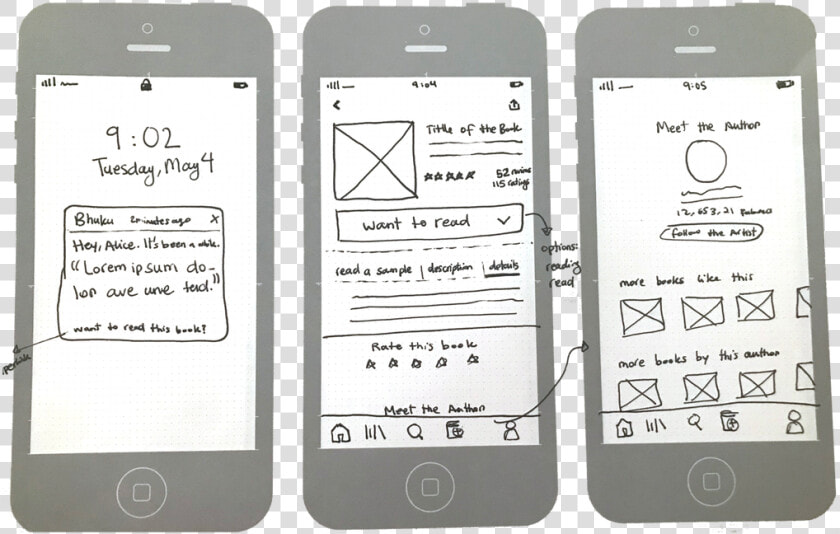 9:02
Tuesday, May 4
Bhuku 2 minutes ago x
Hey, Alice. It's been a while.
"Lorem ipsum do-
lor ave une
want to read this book?
9:04
Title of the Book
52 reviews
115 ratings
want to read
options:
reading
read
read a sample | description | details
Rate this book
Meet the Author
9:05
Meet the Author
12,653,21
follow the Artist
more books like this
more books by this author